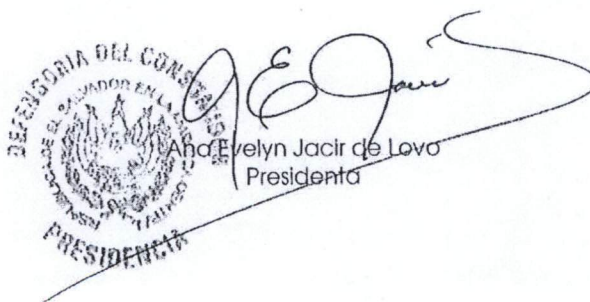 DEFENSORIA DEL CONSUMIDOR
REPUBLICA DE EL SALVADOR EN LA AMERICA CENTRAL
PRESIDENCIA
Ana Evelyn Jacir de Lovo
Presidenta